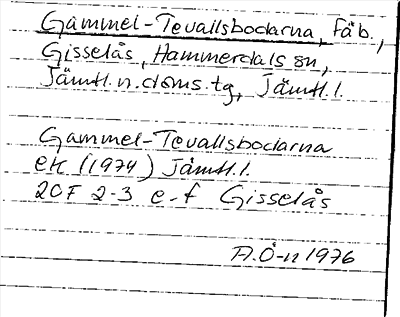 Gammel-Tevallsbodarna, Fäb.,
Gisselås, Hammerdals sn,
Jämtl. n. doms. tg, Jämtl. l.
Gammel-Tevallsbodarna
ek (1974) Jämtl. l.
20F 2-3 e-f Gisselås
A.Ö-n 1976